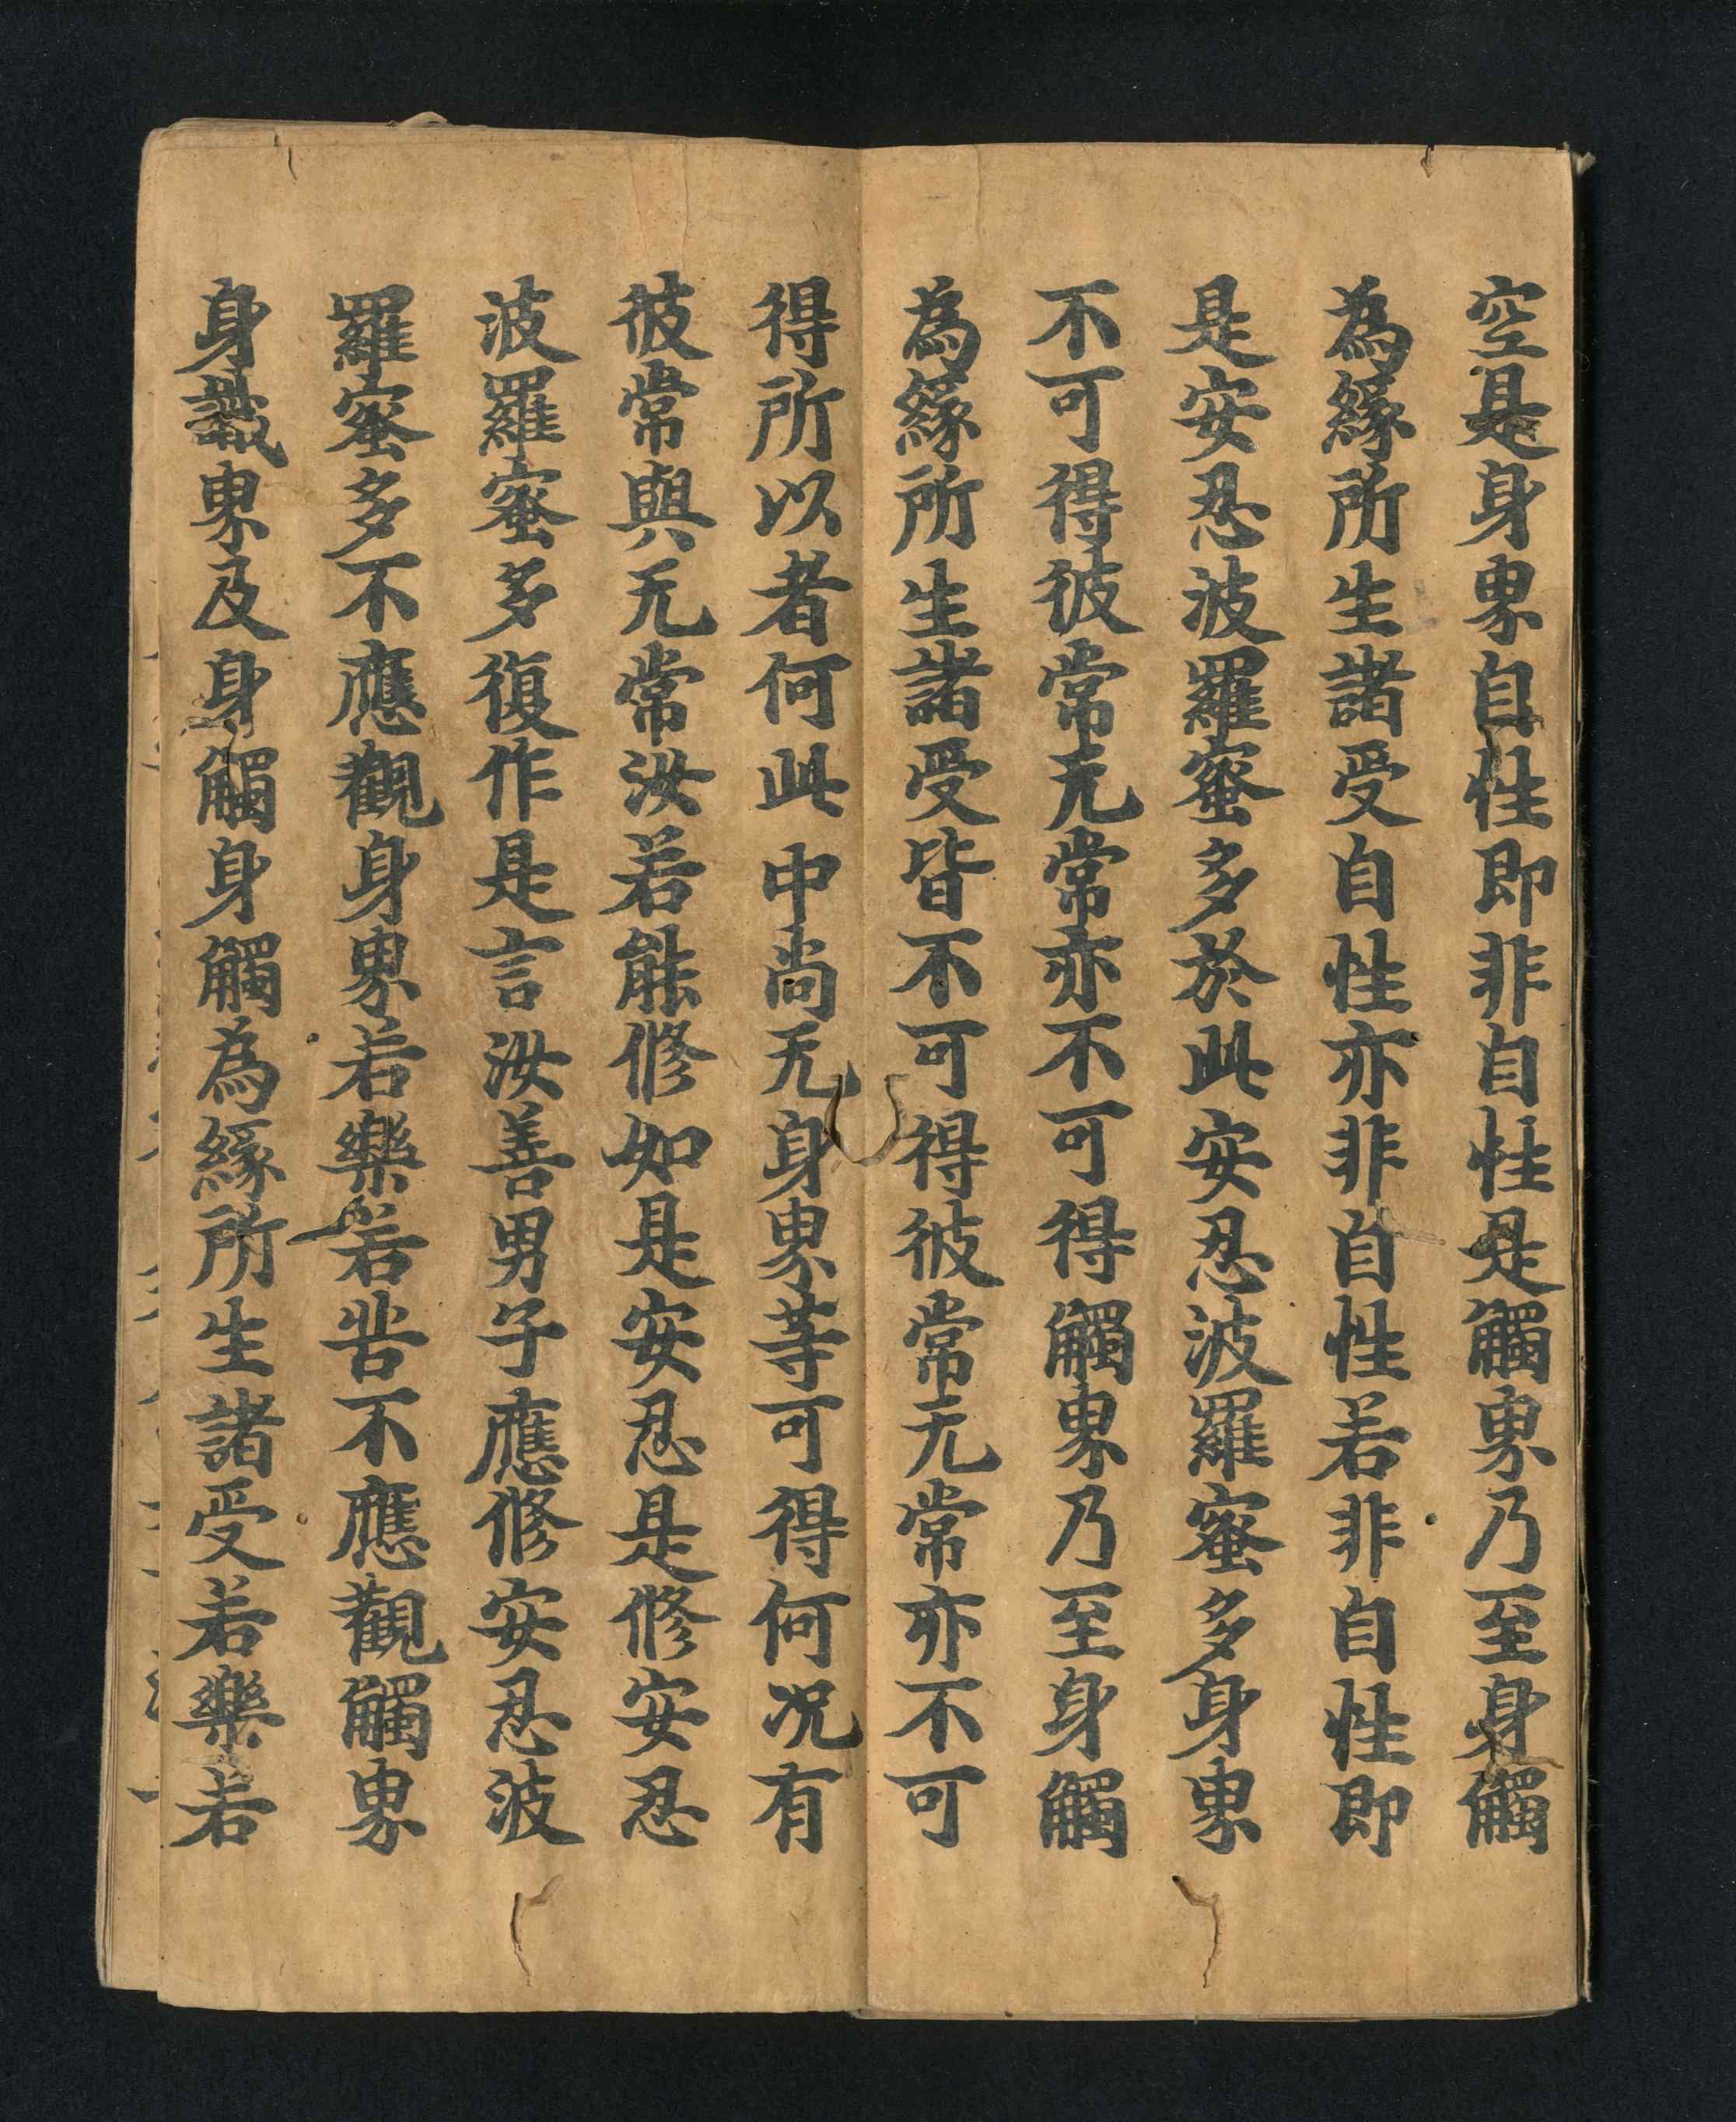 空是身界自性即非自性是觸界乃至身觸
為緣所生諸受自性亦非自性若非自性即
是安忍波羅蜜多於此安忍波羅蜜多身界
不可得彼常无常亦不可得觸界乃至身觸
為緣所生諸受皆不可得彼常无常亦不可
得所以者何此中尚无身界等可得何况有
彼常與无常汝若能修如是安忍是修安忍
波羅蜜多復作是言汝善男子應修安忍波
羅蜜多不應觀身界若樂若苦不應觀觸界
身識界及身觸身觸為緣所生諸受若樂若